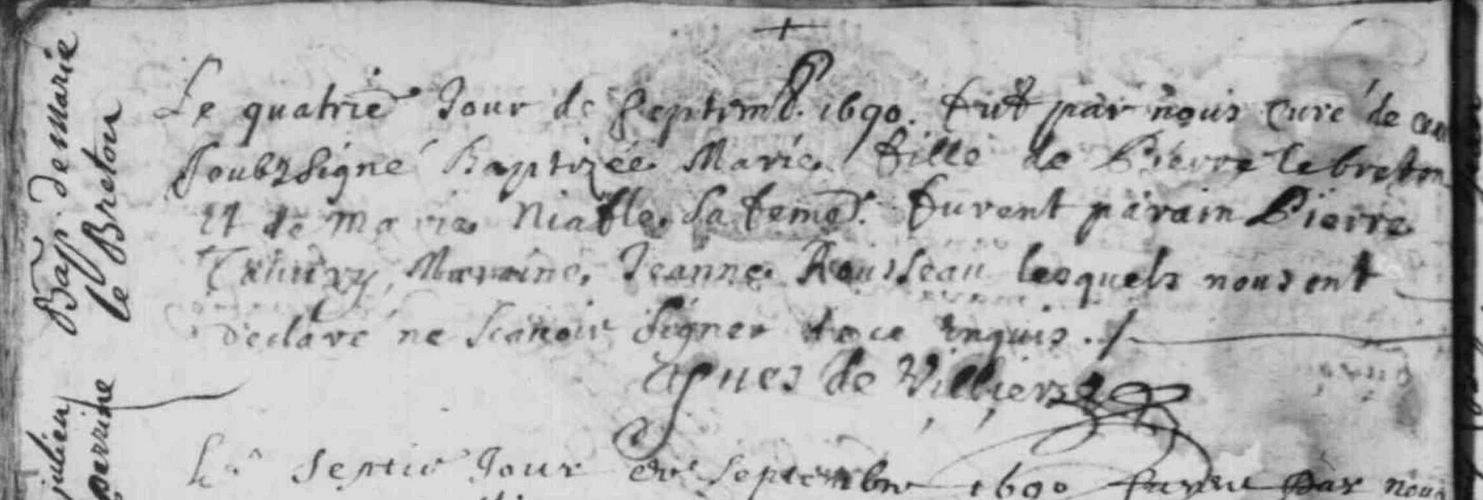 Bap. de marie
le Breton
Le quatrie Jour de Septemb. 1690. Fut par nous Curé de
soubzsigné Baptizée Marie fille de Pierre lebreton
Et de Marie Niafle sa feme. Furent parain Pierre
Maraine, Jeanne Rousseau lesquels nous ont
déclaré ne scauoir signer de ce enquis ./.
de Villiers
julien
perrine
Le septie Jour de Septembre 1690 par nous